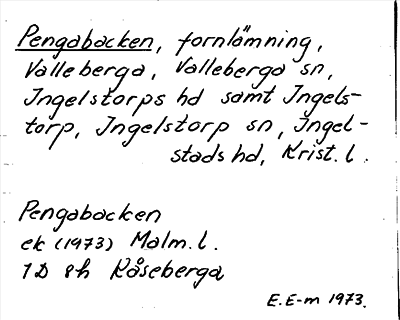 Pengabacken, fornlämning,
Valleberga, Valleberga sn,
Ingelstorps hd samt Ingels-
torp, Ingelstorp sn, Ingel-
stads hd, Krist. l.
Pengabacken
ek (1973) Malm. l.
1D 8h Kåseberga
E.E-m 1973.